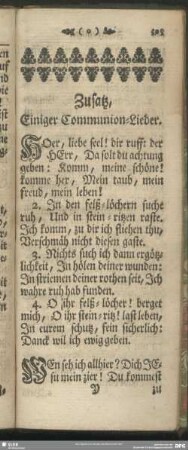 ( o )
Zusatz,
Einiger Communion-Lieder.
HOer, liebe seel! dir rufft der
HErr, Da solt du achtung
geben: Komm, meine schöne!
komme her, Mein taub, mein
freud, mein leben!
2. In den felß-löchern suche
ruh, Und in stein-ritzen raste.
Ich komm, zu dir ich fliehen thu,
Verschmäh nicht diesen gaste.
3. Nichts such ich dann ergötz-
lichkeit, In hölen deiner wunden:
In striemen deiner rothen seit, Ich
wahre ruh hab funden.
4. O ihr felß-löcher! berget
mich, O ihr stein-ritz! last leben,
In eurem schutz, sein sicherlich:
Danck wil ich ewig geben.
WEn seh ich allhier? Dich JE-
su mein zier! Du kommest
Y zu